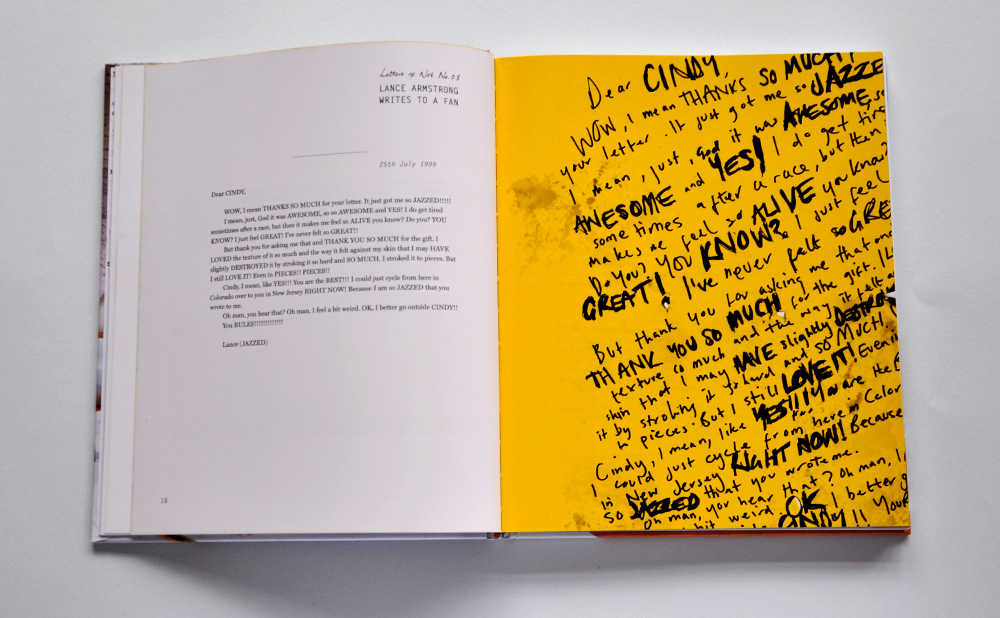 Letters of Not No.08
LANCE ARMSTRONG
WRITES TO A FAN
25th July 1999
Dear CINDY,
WOW, I mean THANKS SO MUCH for your letter. It just got me so JAZZED!!!!!
I mean, just, God it was AWESOME, so so AWESOME and YES! I do get tired
sometimes after a race, but then it makes me feel so ALIVE you know? Do you? YOU
KNOW? I just feel GREAT! I've never felt so GREAT!!
But thank you for asking me that and THANK YOU SO MUCH for the gift. I
LOVED the texture of it so much and the way it felt against my skin that I may HAVE
slightly DESTROYED it by stroking it so hard and SO MUCH. I stroked it to pieces. But
I still LOVE IT! Even in PIECES!! PIECES!!
Cindy, I mean, like YES!!! You are the BEST!!! I could just cycle from here in
Colorado over to you in New Jersey RIGHT NOW! Because I am so JAZZED that you
wrote to me.
Oh man, you hear that? Oh man, I feel a bit weird. OK, I better go outside CINDY!!
You RULES!!!!!!!!!!!!!
Lance (JAZZED)
18
Dear CINDY,
WOW, I mean THANKS SO MUCH
your letter. It just got me so JAZZE
I mean, just, God it was AWESOME, so
AWESOME and YES! I do get tire
sometimes after a race, but then
makes me feel so ALIVE you know?
Do you? YOU KNOW? I just feel
GREAT! I've never felt so GRE
But thank you for asking me that and
THANK YOU SO MUCH for the gift. I L
texture so much and the way it felt a
skin that I may HAVE slightly DESTRO
it by stroking it so hard and so MUCH!
to pieces. But I still LOVE IT! Even i
Cindy, I mean, like YES!!! You are the B
I could just cycle from here in Color
in New Jersey RIGHT NOW! Because
so JAZZED that you wrote me.
Oh man, you hear that? Oh man, I
bit weird OK I better g
CINDY!! You